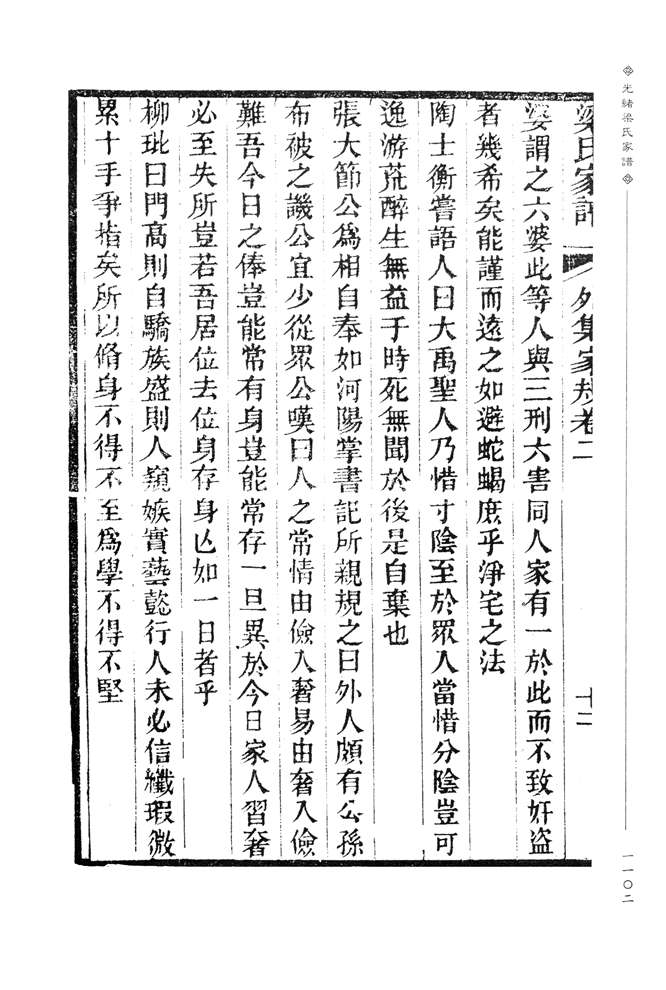 光緒梁氏家譜
一一〇二
梁氏家譜 外集家規卷二 十二
婆謂之六婆此等人與三刑六害同人家有一於此而不致奸盜
者幾希矣能謹而遠之如避蛇蝎庶乎淨宅之法
陶士衡嘗語人曰大禹聖人乃惜寸陰至於眾人當惜分陰豈可
逸游荒醉生無益于時死無聞於後是自棄也
張大節公為相自奉如河陽掌書記所親規之曰外人頗有公孫
布被之譏公宜少從眾公嘆曰人之常情由儉入奢易由奢入儉
難吾今日之俸豈能常有身豈能常存一旦異於今日家人習奢
必至失所豈若吾居位去位身存身亾如一日者乎
柳玭曰門高則自驕族盛則人窺嫉實藝懿行人未必信纖瑕微
累十手爭指矣所以脩身不得不至為學不得不堅